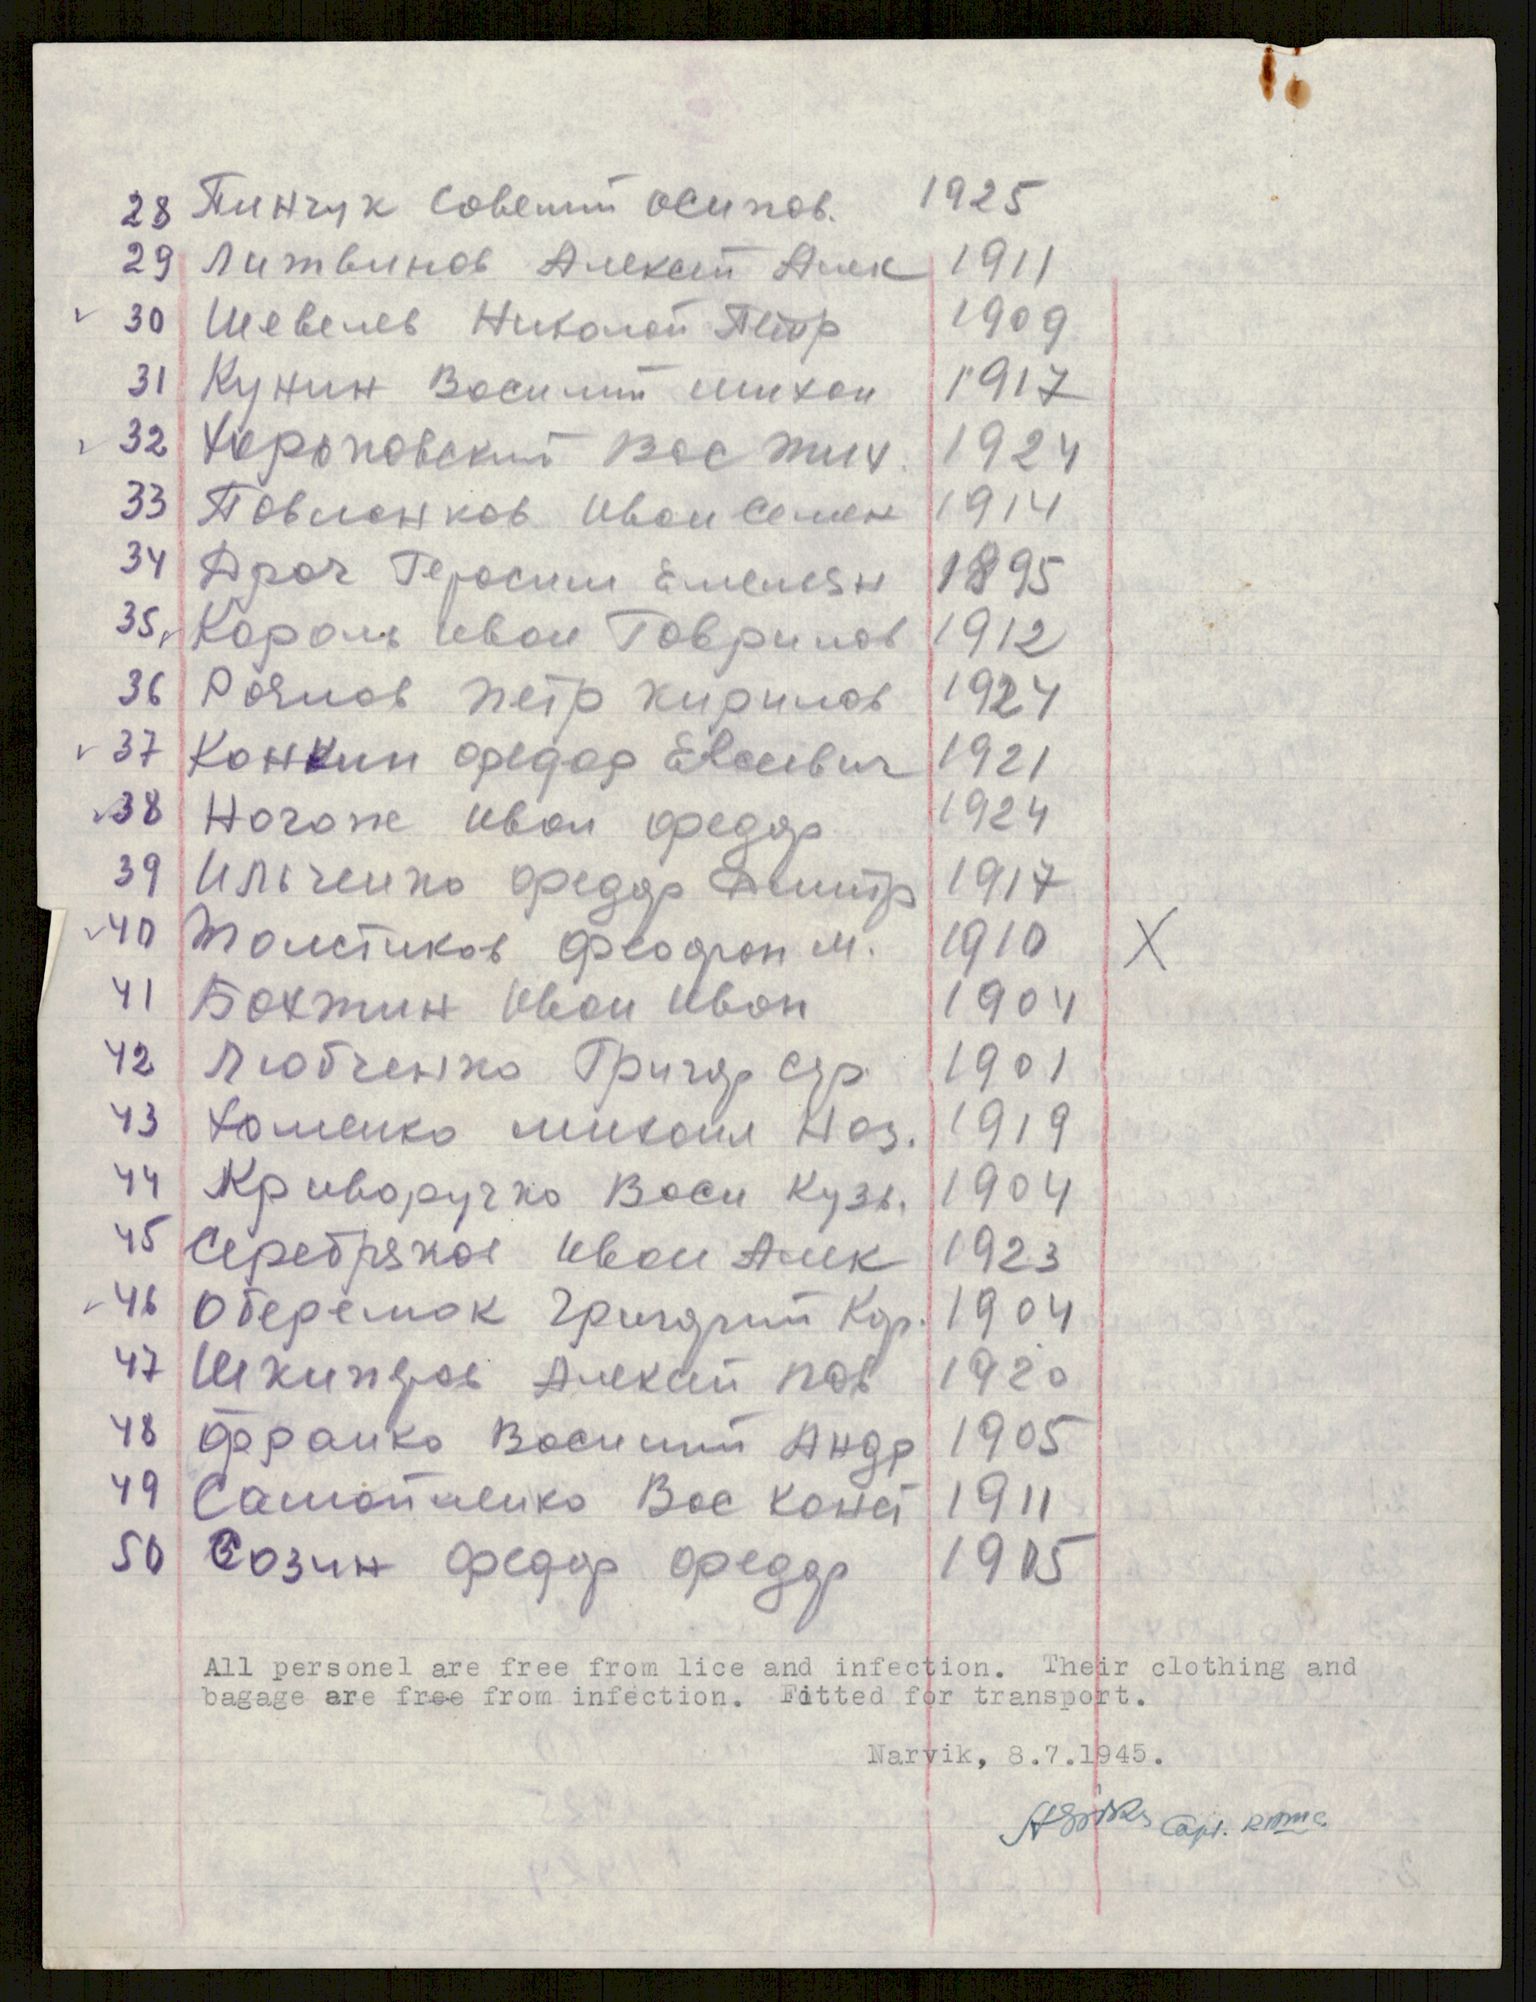 28 Пинчук Советий Осипов. 1925
29 Литвинов Алексей Алек 1911
30 Шевелев Николай Петр 1909
31 Кунин Василий Михаи 1917
32 Хороновский Вас Тих. 1924
33 Павленков Иван Семен 1914
34 Драч Герасим Емельян 1895
35 Король Иван Гаврилов 1912
36 Петр Кирилов 1924
37 Конкин Федор Евсеевич 1921
38 Ногаж Иван Федор 1924
39 Ильченко Федор Дмитр 1917
40 Толстиков Феофан М. 1910 X
41 Бахтин Иван Иван 1904
42 Любченко Григор Сер. 1901
43 Хоменко Михаил Наз. 1919
44 Криворучко Васи Кузь. 1904
45 Серебряков Иван Алек 1923
46 Оберемок Григорий Кор. 1904
47 Шкипяров Алексей Пав 1920
48 Франко Василий Андр 1905
49 Самойленко Вас Конст 1911
50 Созин Федор Федор 1905
All personel are free from lice and infection. Their clothing and
bagage are free from infection. Fitted for transport.
Narvik, 8.7.1945.
Capt. RAMC